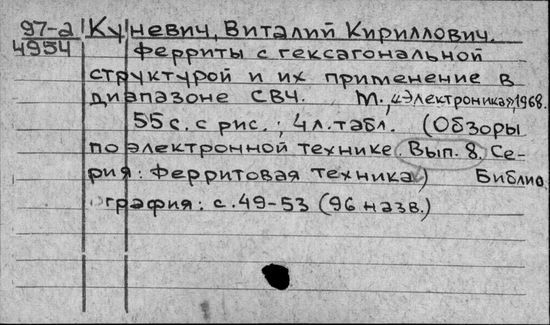 97-а Куневич, Виталий Кириллович.
4954 Ферриты с гексагональной
структурой и их применение в
диапазоне СВЧ. М., «Электроника», 1968.
55 с. с рис.; 4 л. табл. (Обзоры
по электронной технике. Вып. 8. Се-
рия: Ферритовая техника.) Библио
графия: с. 49-53 (96 назв.)